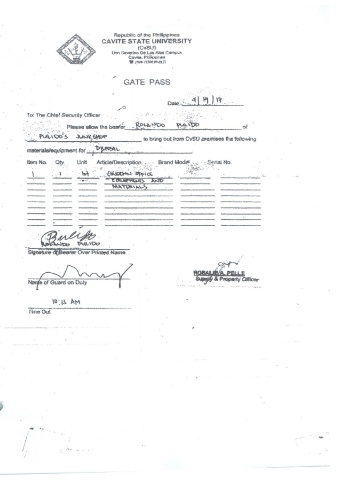 Republic of the Philippines
CAVITE STATE UNIVERSITY
(CvSU)
Don Severino De Las Alas Campus
Cavite, Philippines
GATE PASS
Date: 9/19/19
To: The Chief Security Officer
Please allow the bearer ROLANDO PULIDO of
PULIDO'S JUNKSHOP to bring out from CvSU premises the following
materials/equipment for DISPOSAL
Item No. Qty. Unit Article/Description Brand Model Serial No.
1 1 lot OFFICE
AND
MATERIALS
ROLANDO PULIDO
Signature of Bearer Over Printed Name
ROSALIE A. PELLE
Supply & Property Officer
Name of Guard on Duty
AM
Time Out